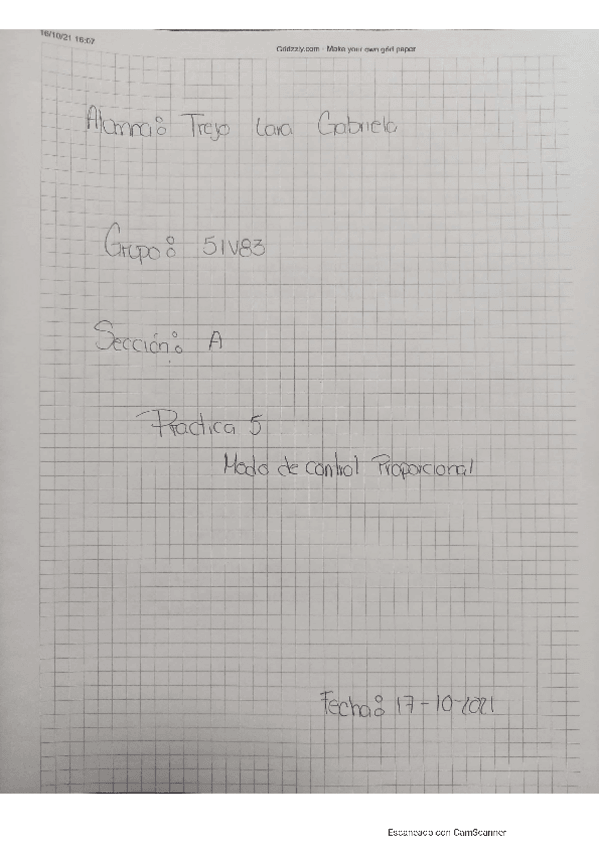 16/10/21 16:07
Gridzzly.com - Make your own grid paper
Alumna: Trejo Lara Gabriela
Grupo: 5IV83
Sección: A
Practica 5
Modo de control Proporcional
Fecha: 17-10-2021
Escaneado con CamScanner